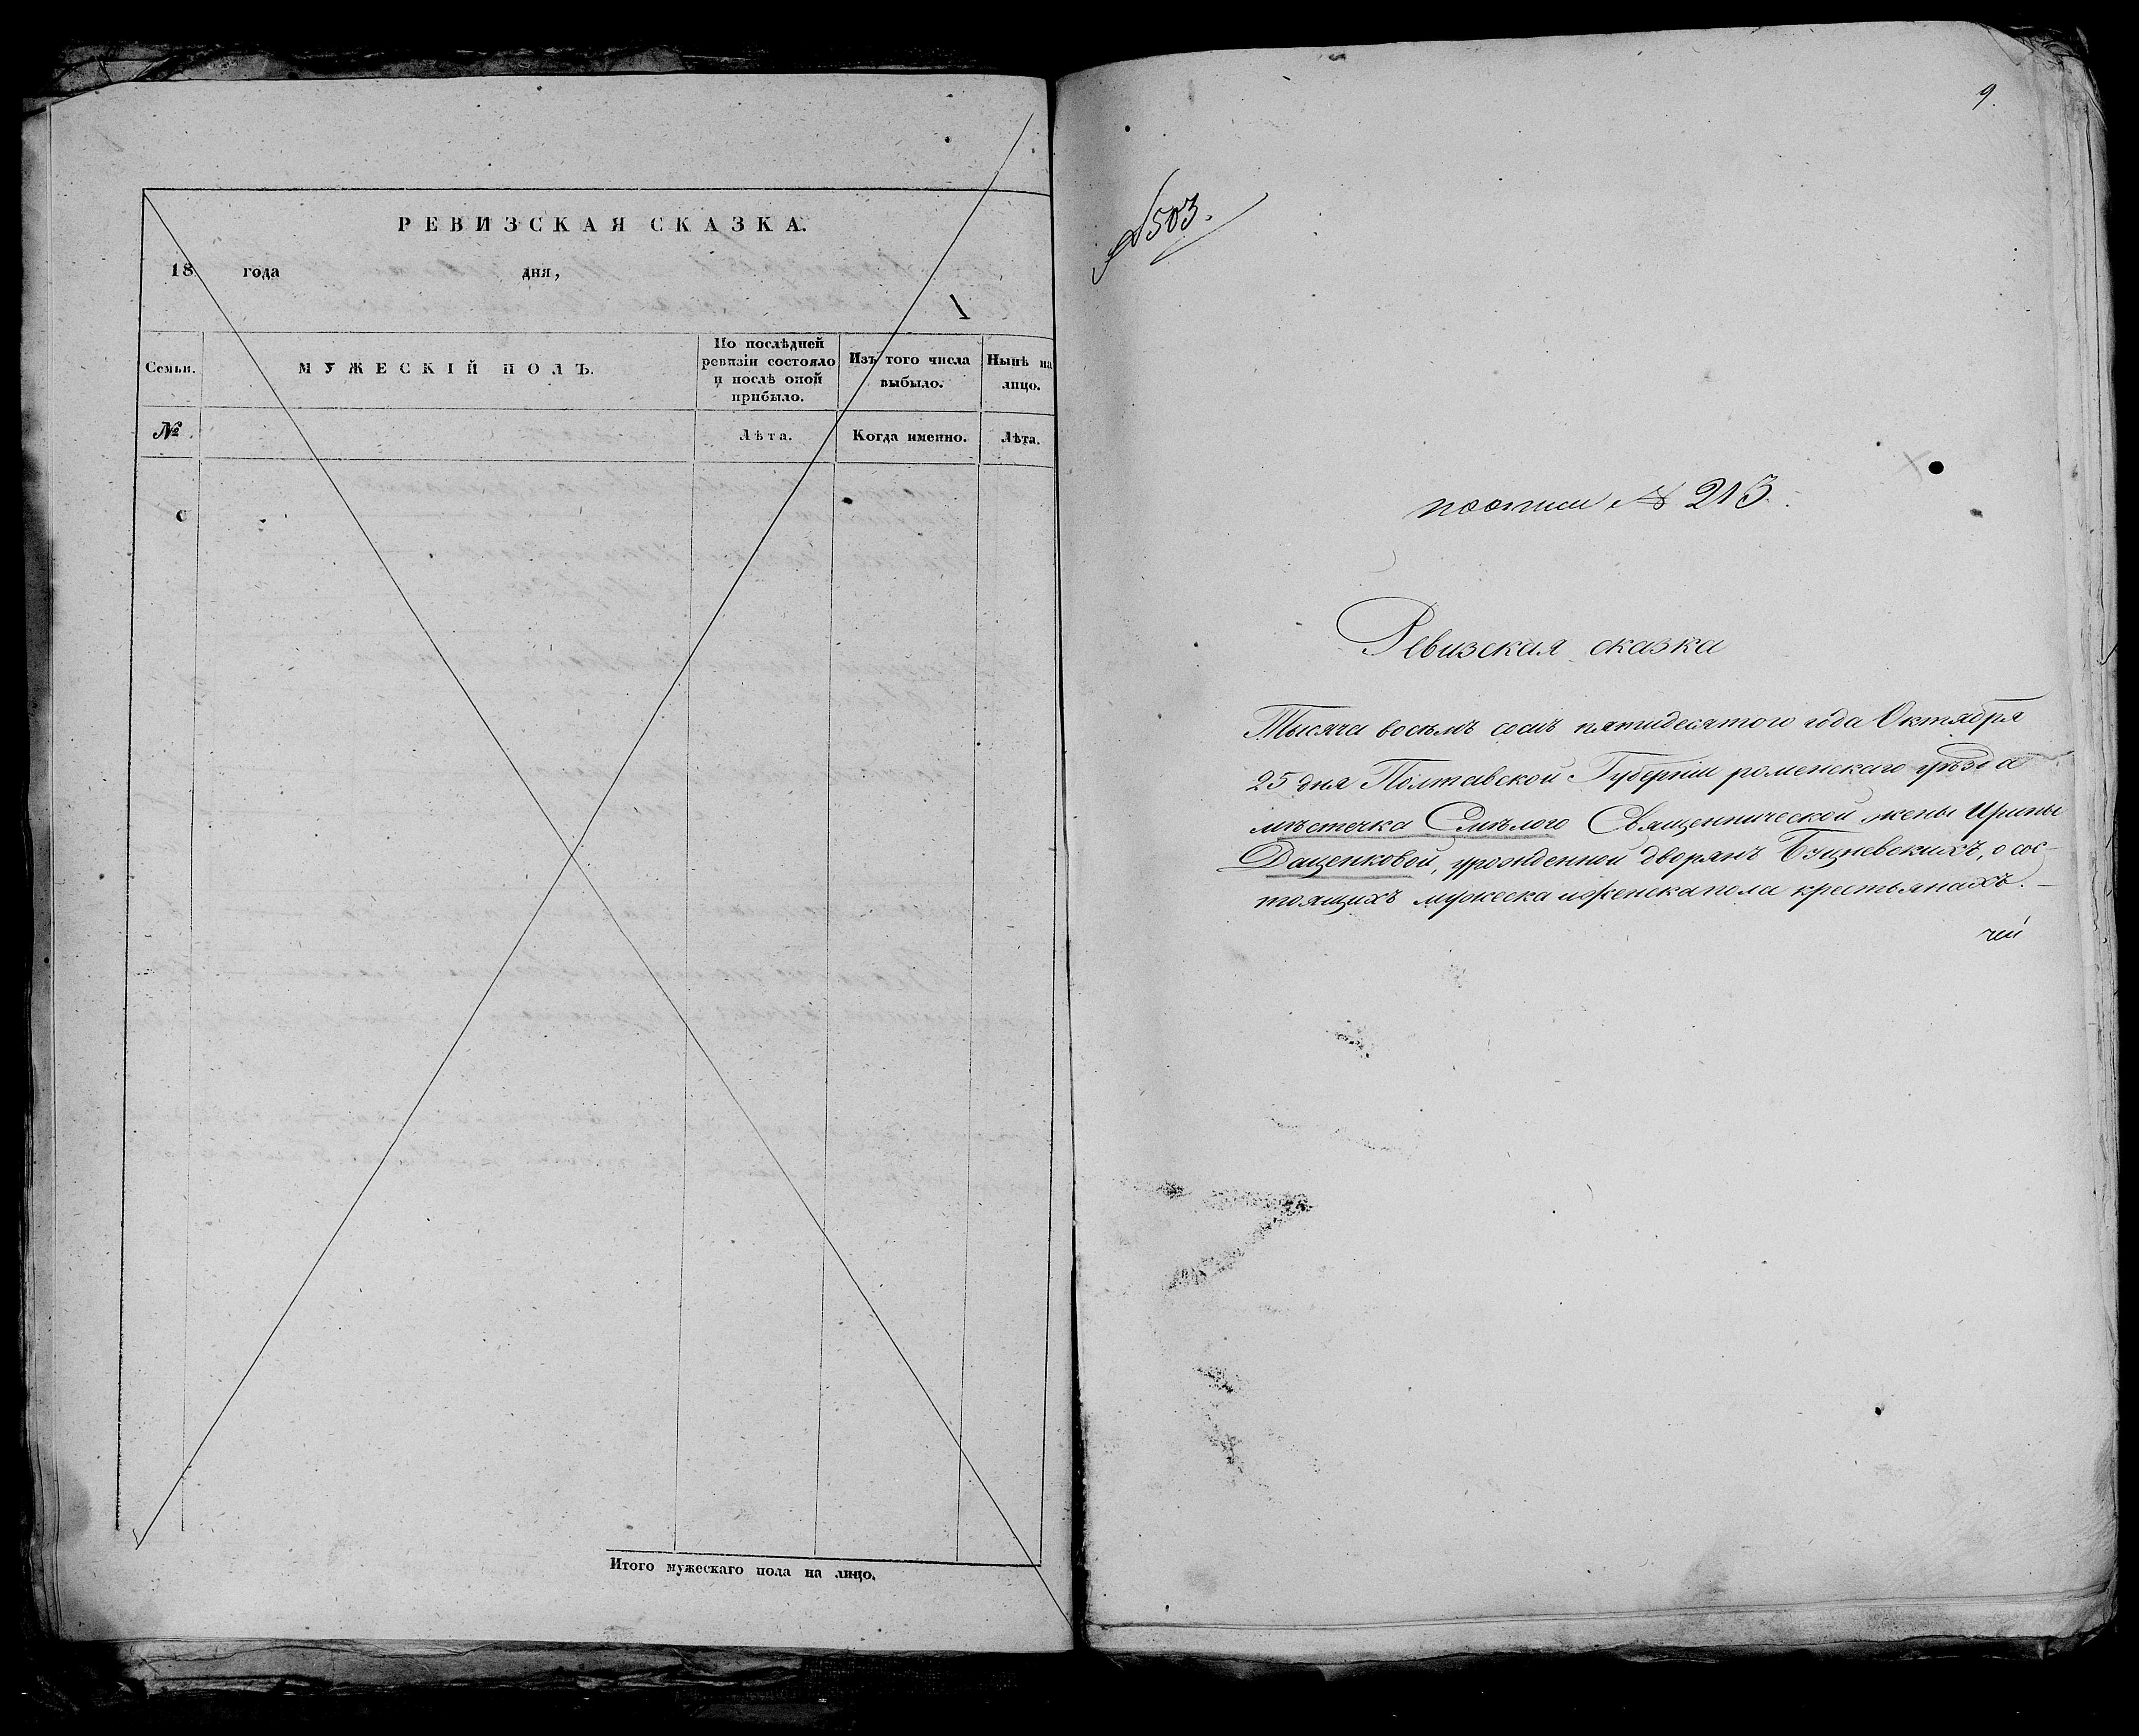 РЕВИЗСКАЯ СКАЗКА.
18 года дня,
Семьи.
МУЖЕСКІЙ ПОЛЪ.
По послѣдней
ревизіи состояло
и послѣ оной
прибыло.
Изъ того числа
выбыло.
Нынѣ на
лицо.
№
Лѣта.
Когда именно.
Лѣта.
Итого мужескаго пола на лицо.
9.
№503.
№ 213.
Ревизская сказка
Тысяча восемъ сотъ пятидесятого года Октября
25 дня Полтавской Губерніи роменскаго уѣзда
мѣстечка Смѣлого Священнической жены Ирины
Даценковой, урожденной дворянъ Буцневскихъ, о сос-
тоящихъ мужеска и женска пола крестьянахъ. —